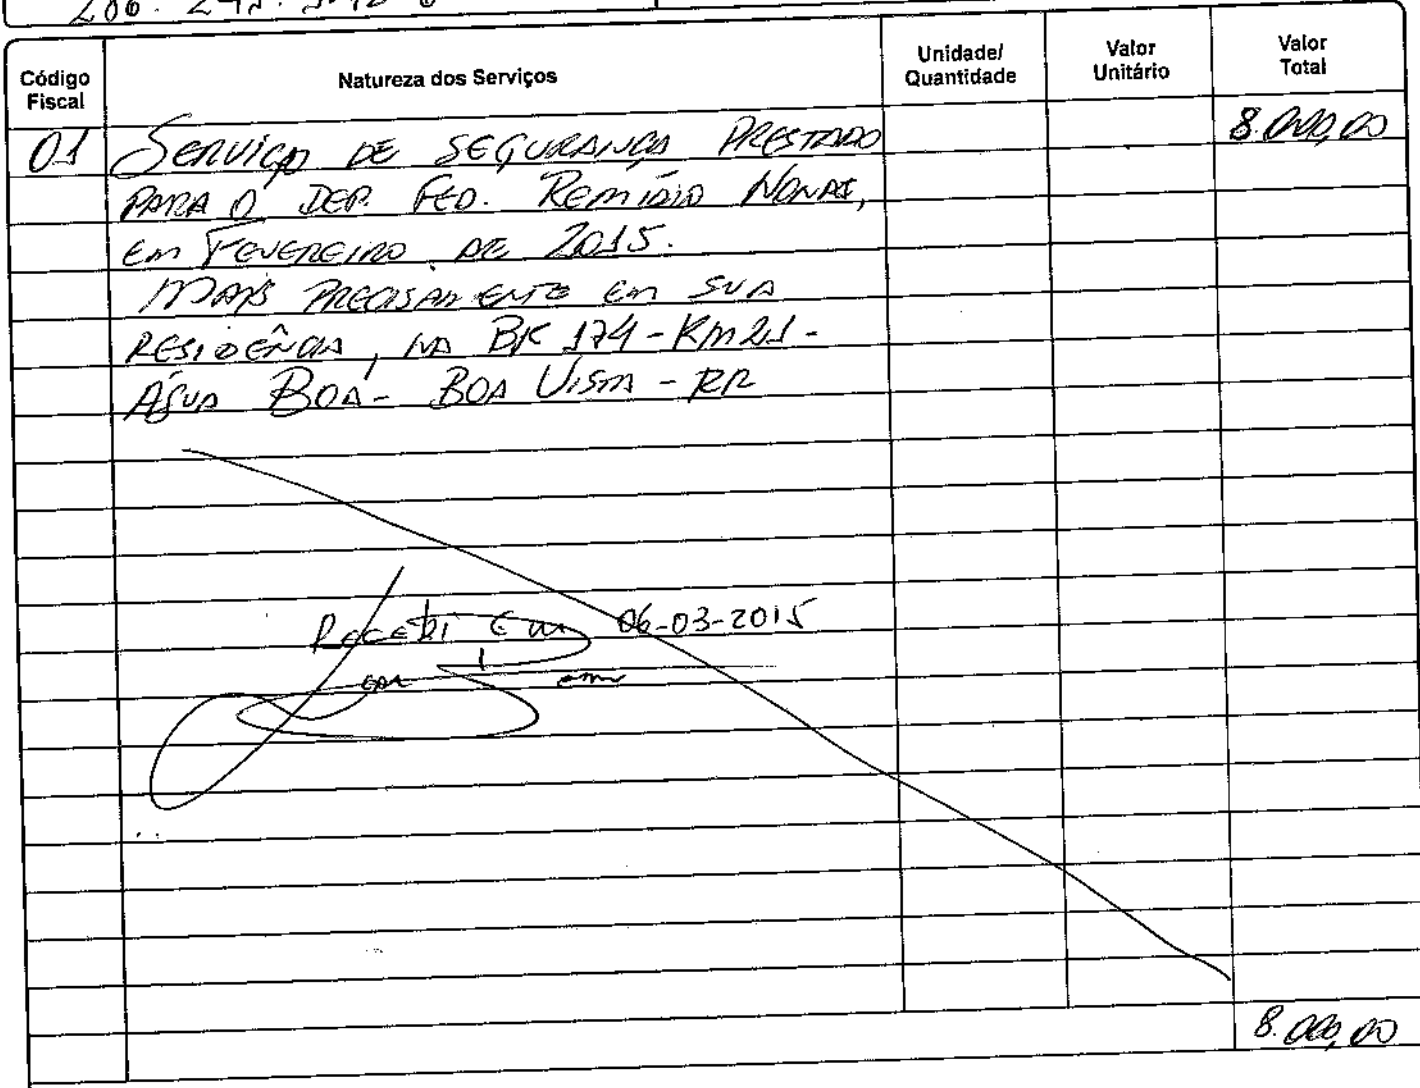 Código Fiscal
Natureza dos Serviços
Unidade/ Quantidade
Valor Unitário
Valor Total
01 SERVIÇO DE SEGURANÇA PRESTADO 8.000,00
PARA O DEP. FED. REMÍDIO MONAI,
EM FEVEREIRO DE 2015.
MAIS PRECISAMENTE EM SUA
RESIDÊNCIA, NA BR 174 - KM 21 -
ÁGUA BOA - BOA VISTA - RR
RECEBI EM 06-03-2015
8.000,00